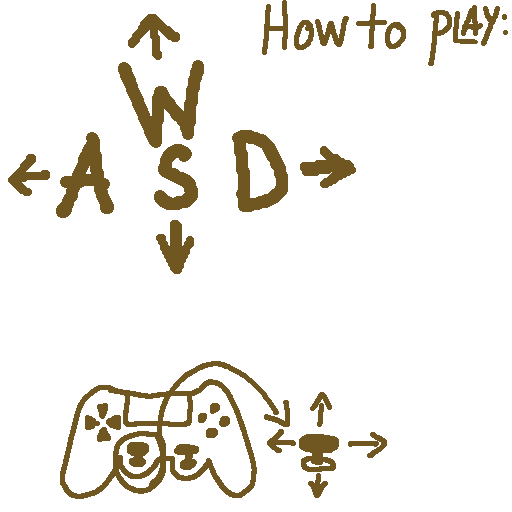 How to PLAY:
W
A S D